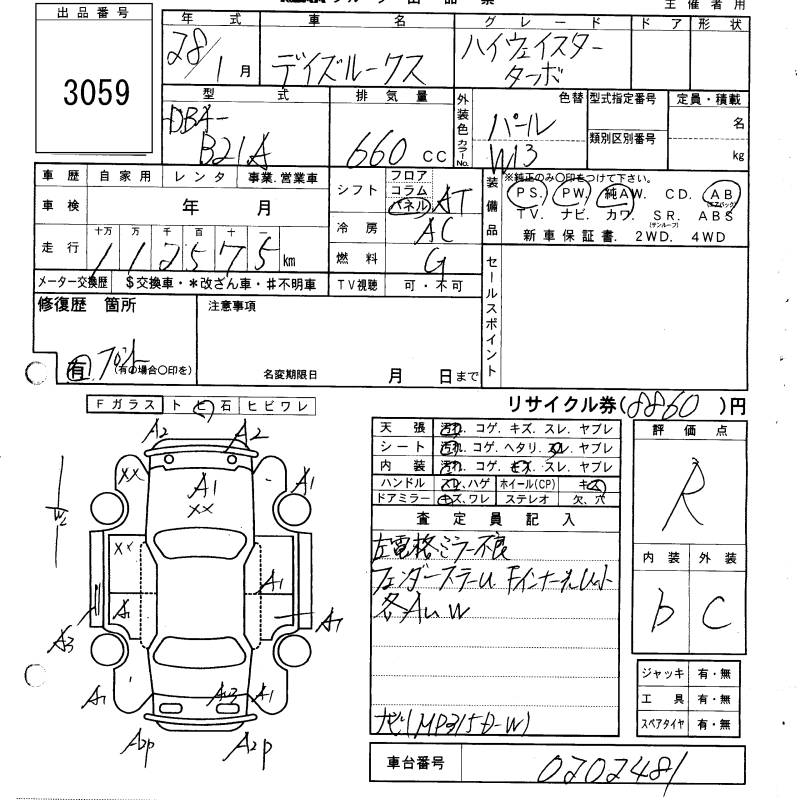 主催者用
出品番号
3059
年式 車名 グレード ドア 形状
28/1月 デイズルークス ハイウェイスター
ターボ
型式 排気量 外装色 カラーNo. 色替 型式指定番号 定員・積載
DBA-
B21A 660 CC パール
W13 類別区別番号 名
kg
車歴 自家用 レンタ 事業.営業車
車検 年 月
走行 十万 万 千 百 十 一
112575 km
メーター交換歴 $交換車・*改ざん車・#不明車
シフト フロア コラム パネル AT
冷房 AC
燃料 G
TV視聴 可・不可
装備品 ※純正のみ〇印をつけて下さい。
PS. PW. 純AW. CD. AB(エアバック)
TV. ナビ. カワ. SR.(サンルーフ) ABS
新車保証書. 2WD. 4WD
セールスポイント
修復歴 箇所
有 フロント
(有の場合〇印を)
注意事項
名変期限日 月 日まで
Fガラス ト ヒ 石 ヒビワレ
リサイクル券(8860)円
天張 汚れ. コゲ. キズ. スレ. ヤブレ
シート 汚れ. コゲ. ヘタリ. スレ. ヤブレ
内装 汚れ. コゲ. キズ. スレ. ヤブレ
ハンドル スレ、ハゲ ホイール(CP) キズ
ドアミラー キズ、ワレ ステレオ 欠、穴
査定員記入
左電格ミラー不良
各AuW
ナビ(MP315D-W)
評価点
R
内装 外装
b C
ジャッキ 有・無
工具 有・無
スペアタイヤ 有・無
車台番号 0202481
A2 A2
XX A1 A1
XX
W2
XX A1
A1 A1
A3
A1 A3 A1
A2P A2P